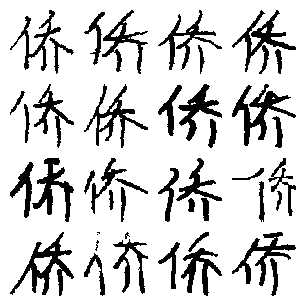 侨侨侨侨
侨侨侨侨
侨侨侨侨
侨侨侨侨